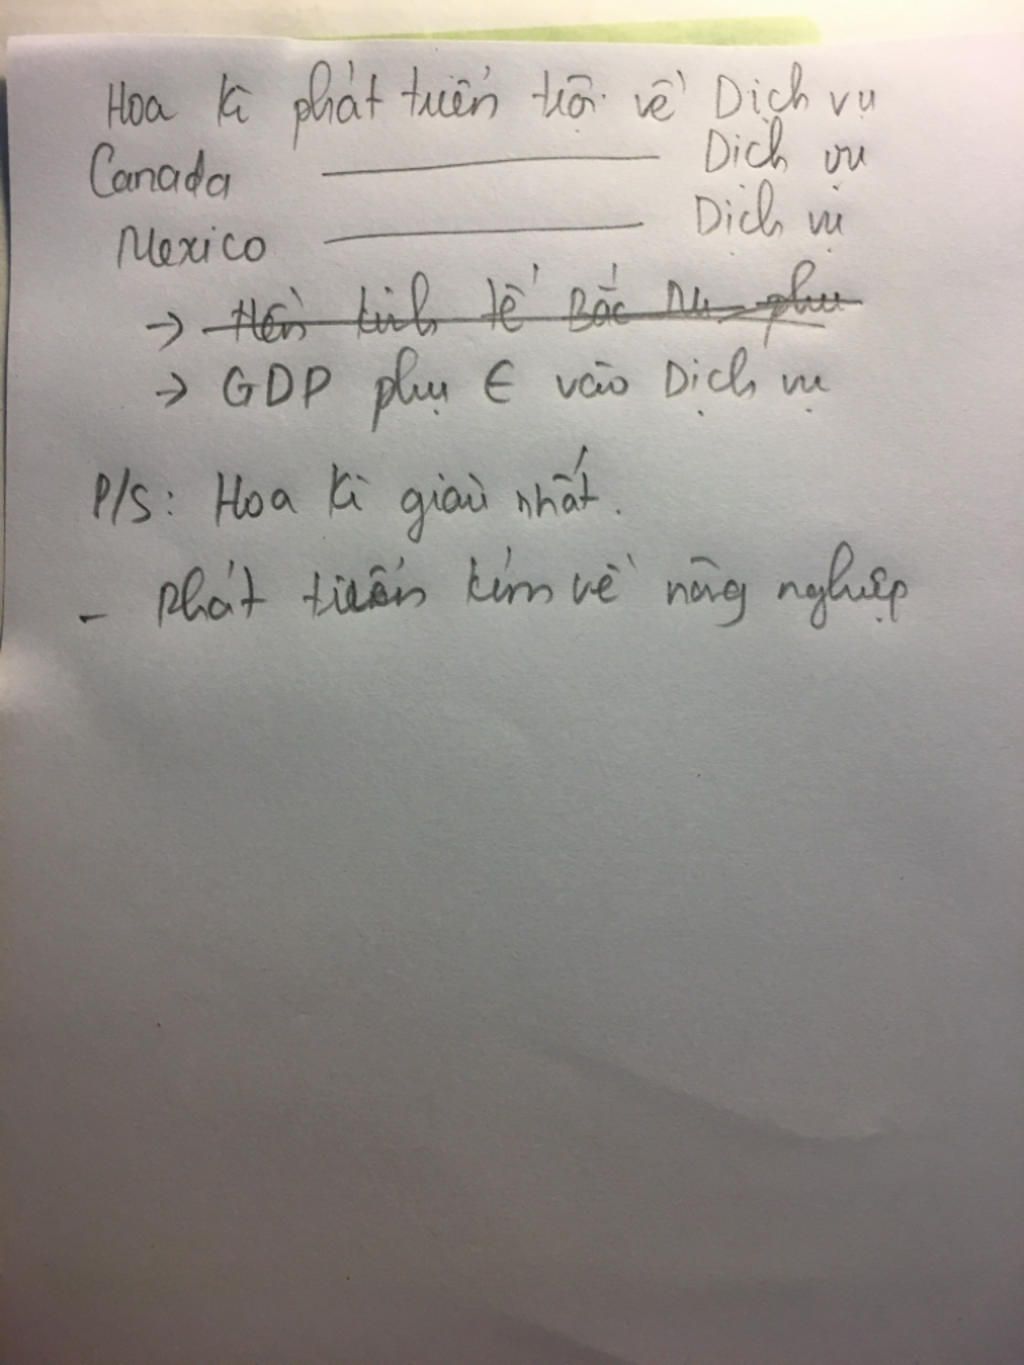 Hoa Kì phát triển trội về Dịch vụ
Canada ——— Dịch vụ
Mexico ——— Dịch vụ
→ Nền kinh tế Bắc Mĩ phụ
→ GDP phụ ∈ vào Dịch vụ
P/S: Hoa Kì giàu nhất.
- Phát triển kém về nông nghiệp